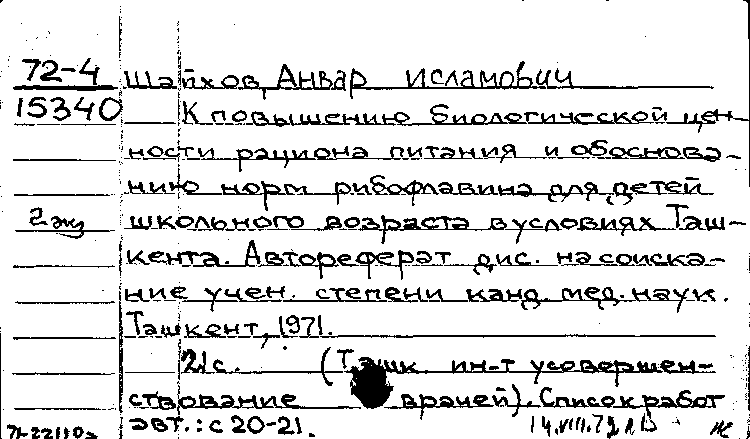 72-4
Шайхов, Анвар Исламович
15340
К повышению биологической цен-
ности рациона питания и обоснова-
нию норм рибофлавина для детей
2 экз
школьного возраста в условиях Таш-
кента. Автореферат дис. на соиска-
ние учен. степени канд. мед. наук.
Ташкент, 1971.
21 с. (Ташк. ин-т усовершен-
ствование врачей). Список работ
авт.: с 20-21.